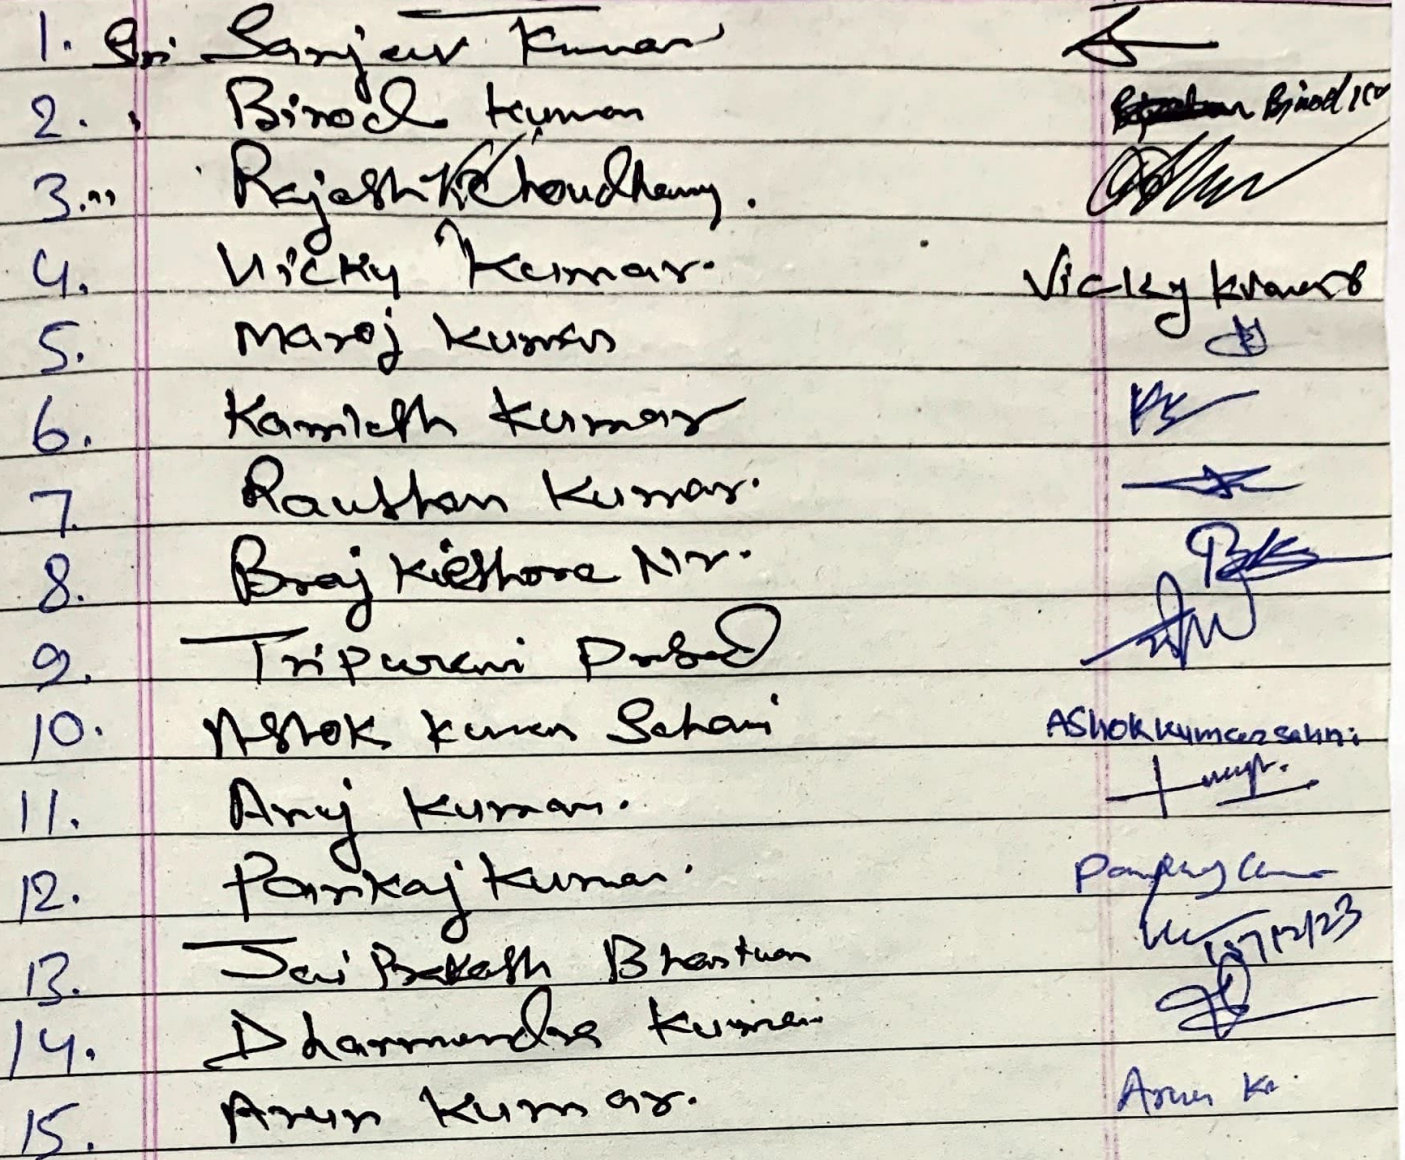 1. Sri Sanjeev Kumar
2. " Binod Kumar Binod Kr
3. " Rajesh Kr Choudhary.
4. Vicky Kumar. Vicky Kumar
5. Manoj Kumar
6. Kamlesh Kumar
7. Raushan Kumar.
8. Braj Kishore Mr.
9. Tripurari Prasad
10. Ashok Kumar Sahani AShok kumar sahni
11. Anuj Kumar.
12. Pankaj Kumar. Pankaj Kumar
13. Jai Prakash 17/12/23
14. Dharmendra Kumar
15. Arun Kumar. Arun Kr.